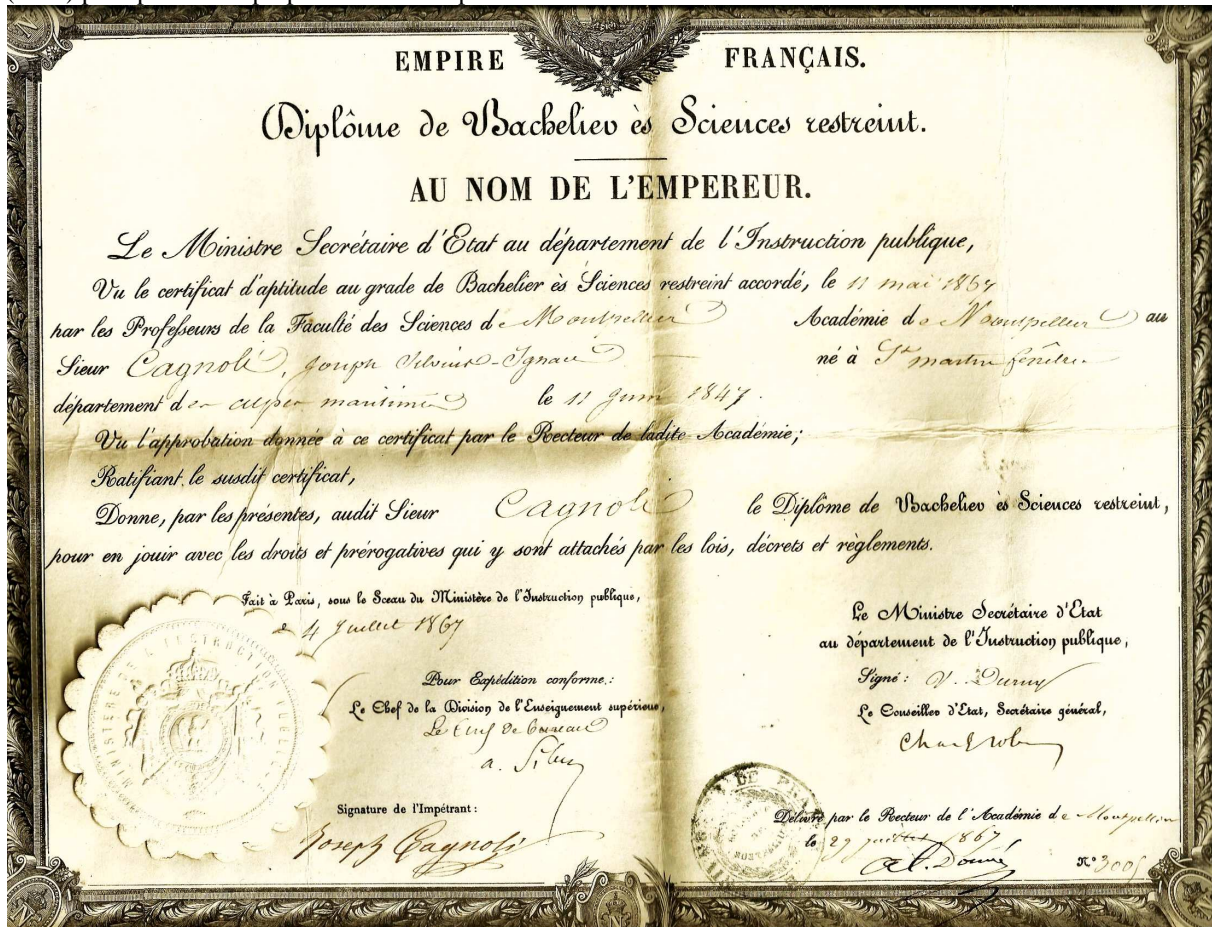 EMPIRE FRANÇAIS.
Diplôme de Bachelier ès Sciences restreint.
AU NOM DE L'EMPEREUR.
Le Ministre Secrétaire d'Etat au département de l'Instruction publique,
Vu le certificat d'aptitude au grade de Bachelier ès Sciences restreint accordé, le 11 mai 1867
par les Professeurs de la Faculté des Sciences de Montpellier Académie de Montpellier au
Sieur Cagnoli, Joseph Ignace né à St martin
département des alpes maritimes le 11 Juin 1847.
Vu l'approbation donnée à ce certificat par le Recteur de ladite Académie;
Ratifiant le susdit certificat,
Donne, par les présentes, audit Sieur Cagnoli le Diplôme de Bachelier ès Sciences restreint,
pour en jouir avec les droits et prérogatives qui y sont attachés par les lois, décrets et règlements.
Fait à Paris, sous le Sceau du Ministère de l'Instruction publique,
le 4 Juillet 1867
Pour Expédition conforme:
Le Chef de la Division de l'Enseignement supérieur,
Le Chef de bureau
Signature de l'Impétrant:
Joseph Cagnoli
MINISTERE DE L'INSTRUCTION PUBLIQUE
Le Ministre Secrétaire d'Etat
au département de l'Instruction publique,
Signé: V. Duruy
Le Conseiller d'Etat, Secrétaire général,
Délivré par le Recteur de l'Académie de Montpellier
le 29 juillet 1867
N° 3005